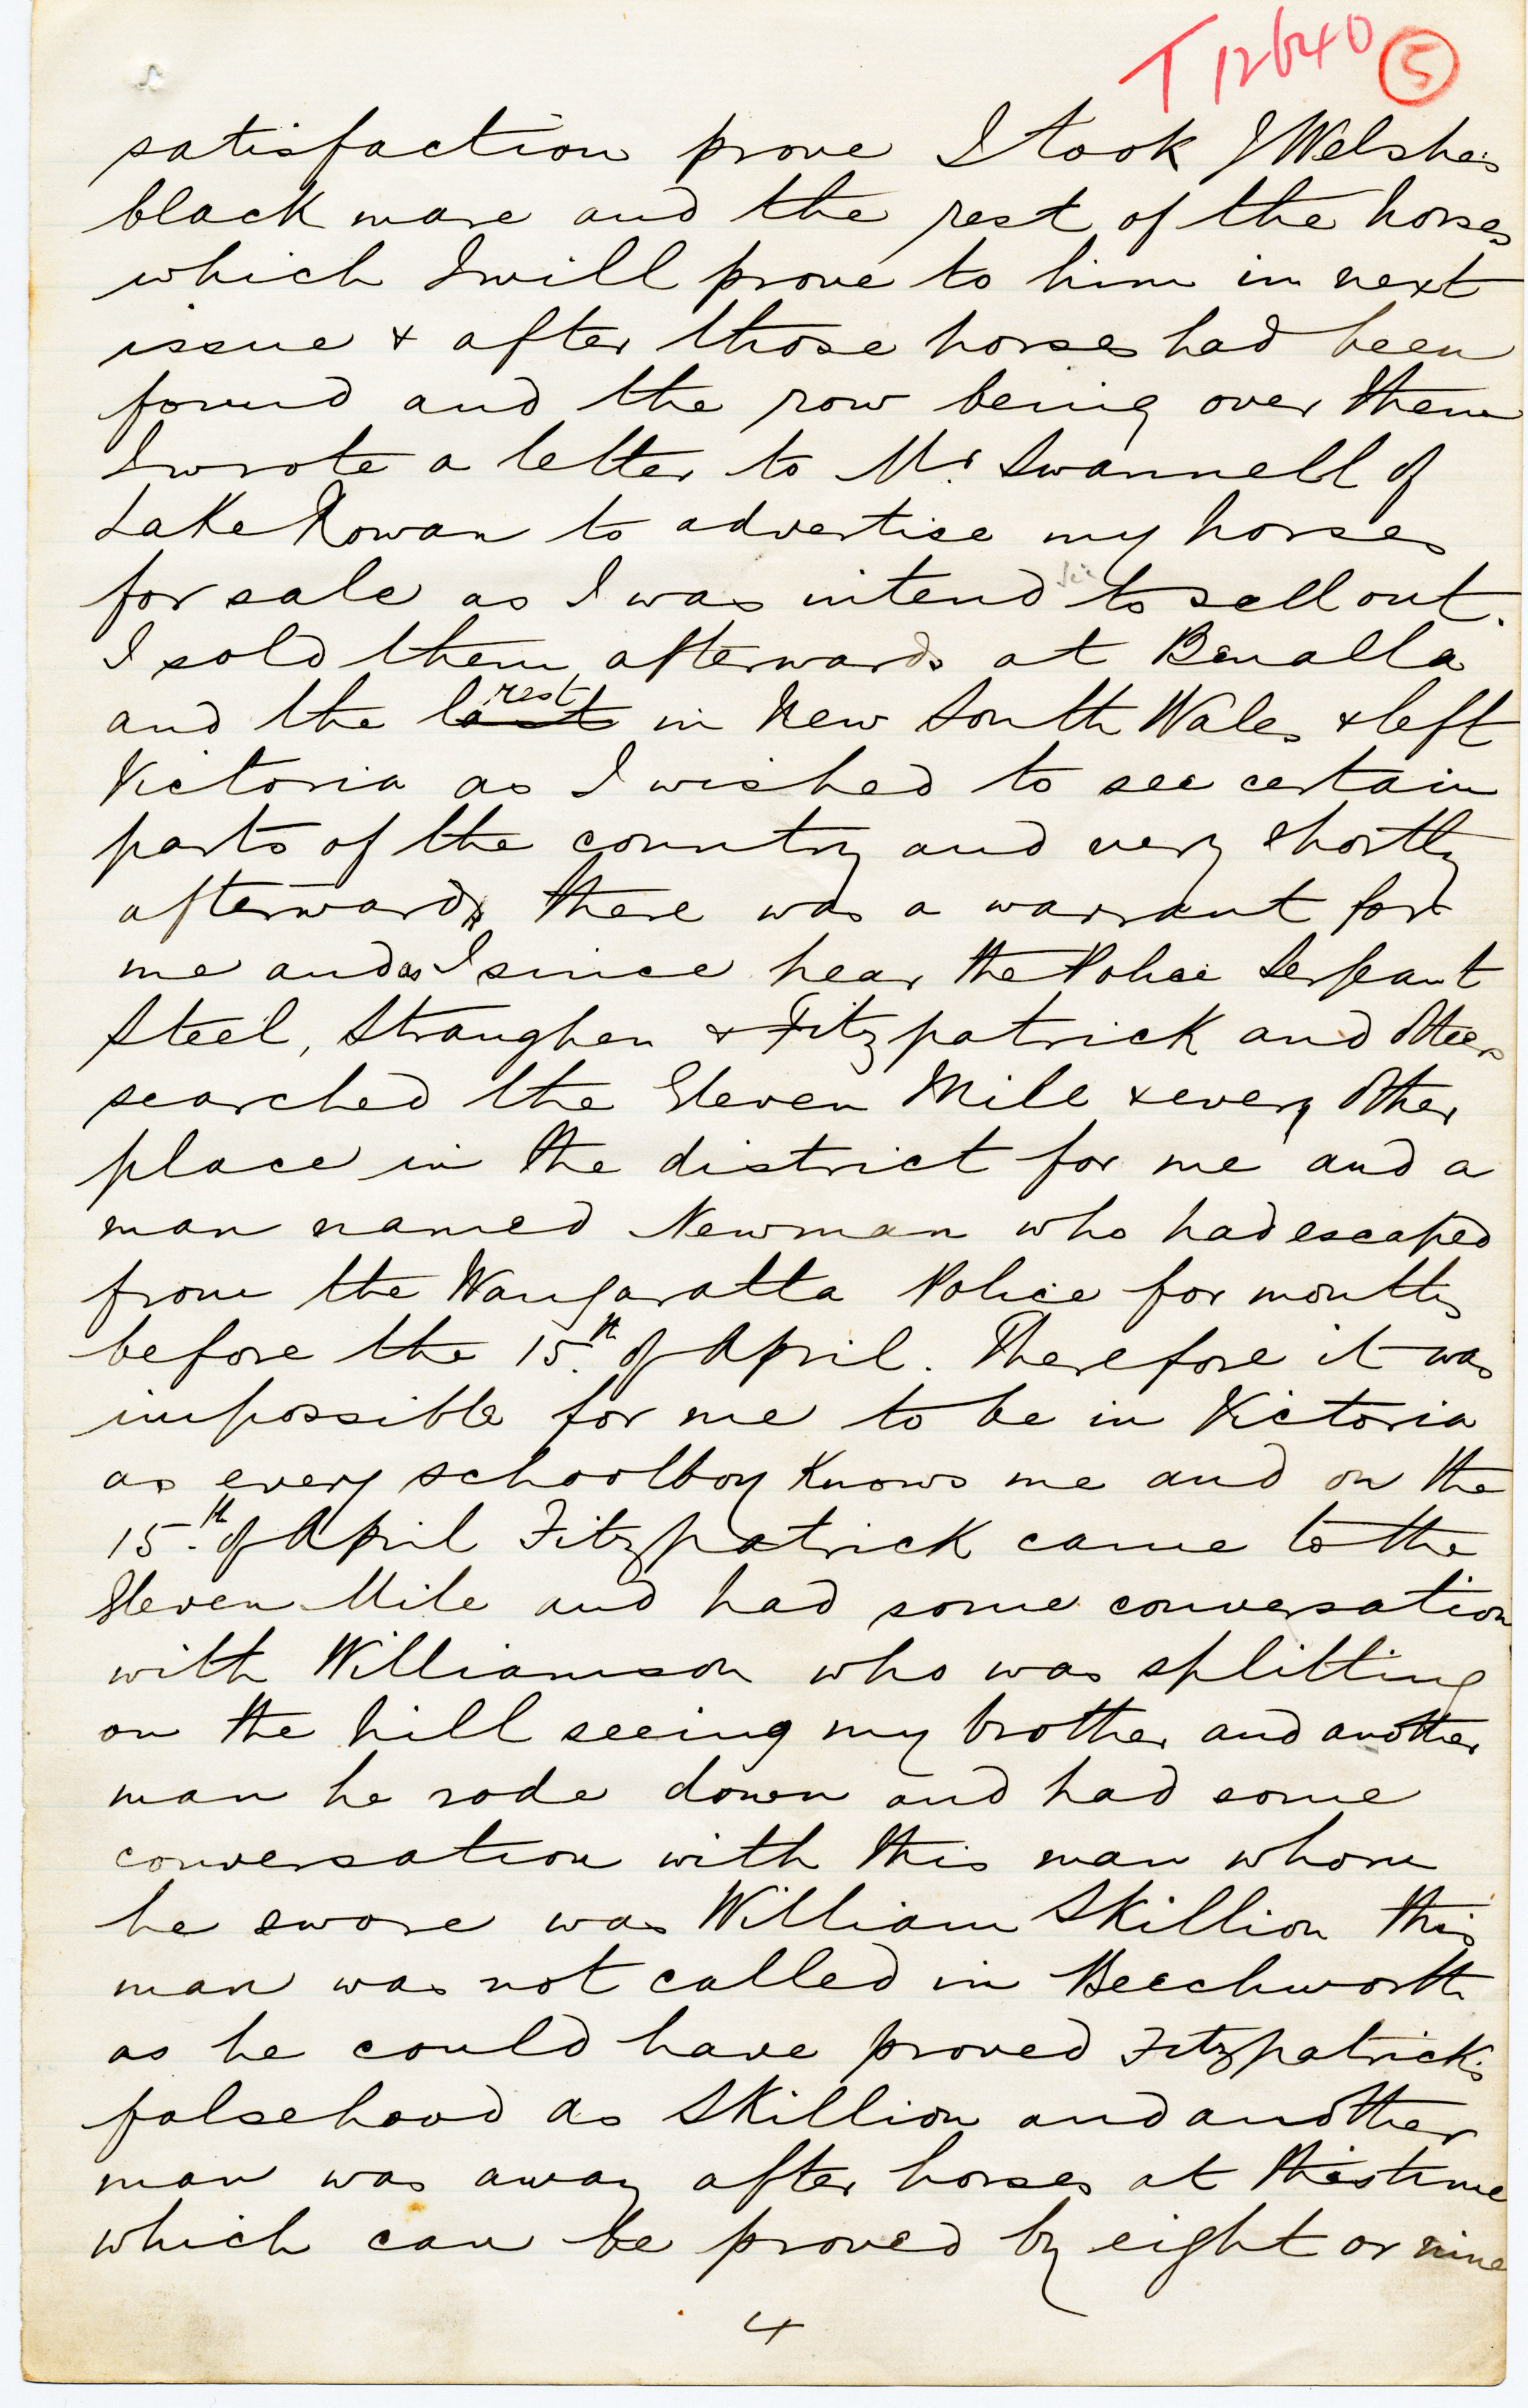 T 12640 5
satisfaction prove I took J Welshes
black mare and the rest of the horses
which I will prove to him in next
issue & after those horses had been
found and the row being over them
I wrote a letter to Mr. Swannell of
Lake Rowan to advertise my horses
for sale as I was intend to sell out.
I sold them afterwards at Benalla
rest
and the last in New South Wales & left
Victoria as I wished to see certain
parts of the country and very shortly
afterwards there was a warrant for
me and as I since hear the Police Sergeant
Steel, Straughen & Fitzpatrick and others
searched the Eleven Mile & every other
place in the district for me and a
man named Newman who had escaped
from the Wangaratta Police for months
before the 15.th of April. Therefore it was
impossible for me to be in Victoria
as every schoolboy knows me and on the
15.th of April Fitzpatrick came to the
Eleven Mile and had some conversation
with Williamson who was splitting
on the hill seeing my brother and another
man he rode down and had some
conversation with this man whom
he swore was William Skillion this
man was not called in Beechworth
as he could have proved Fitzpatrick's
falsehood as Skillion and another
man was away after horses at this time
which can be proved by eight or nine
4